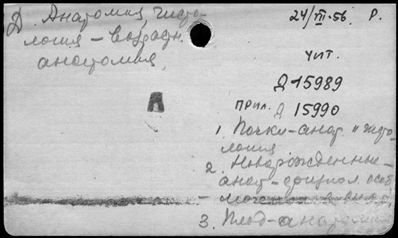 Д Анатомия, гисто-
логия – возрастн.
анатомия,
24/III-56. Р.
чит.
Д 15989
прил. Д 15990
Д
1. Почки-анат. и гисто-
логия
2. Новорожденные-
анат.-физиол. особ.
3. Плод-анатомия